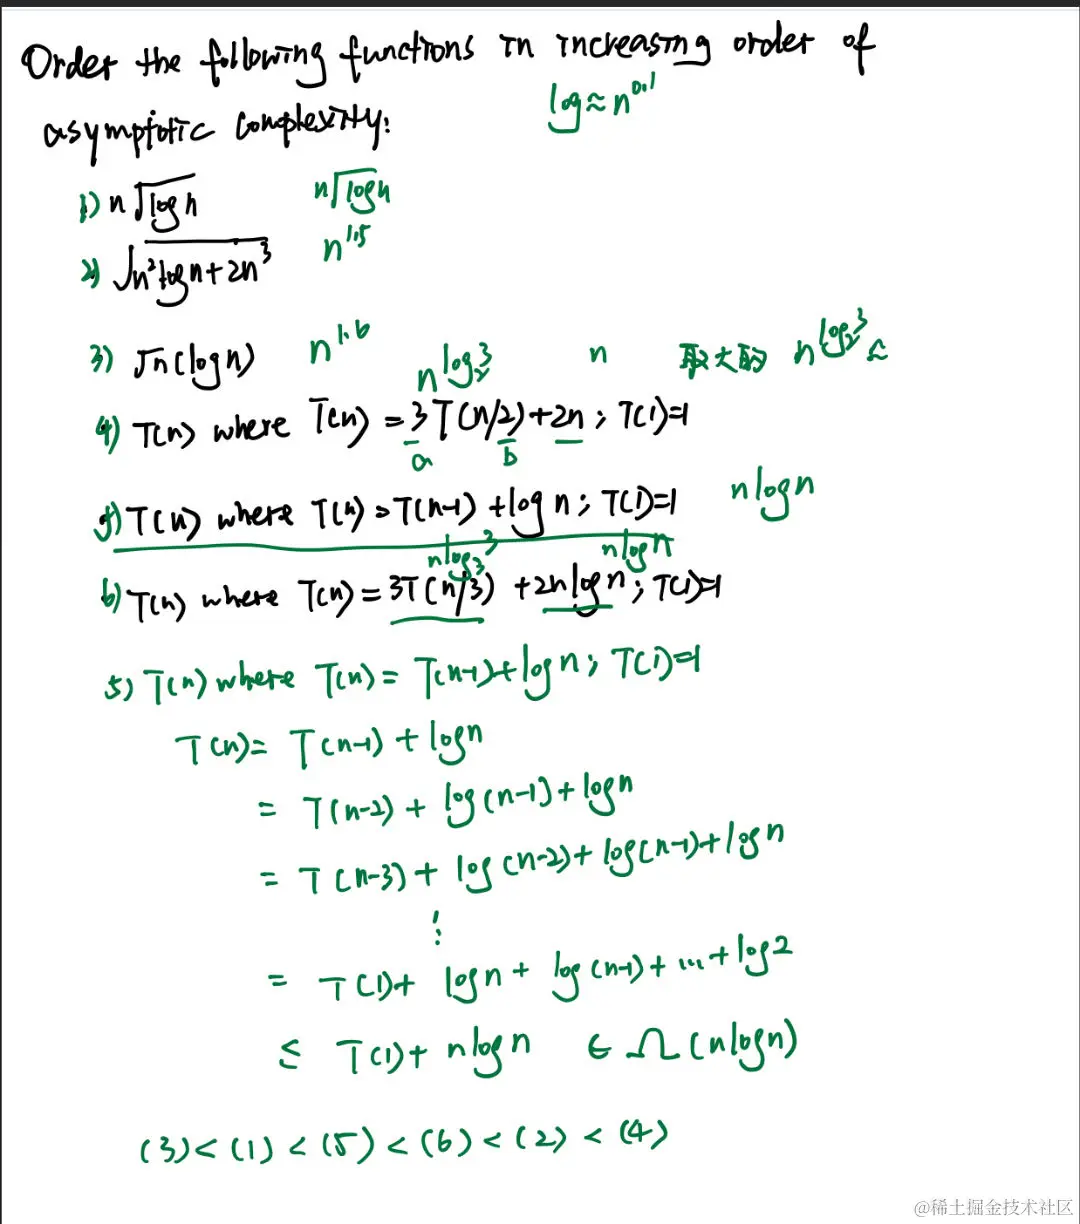 Order the following functions in increasing order of
asymptotic complexity:
log≈n^0.1
1) n√(log n) n√(log n)
2) √(n²logn+2n³) n^1.5
3) √n(logn) n^1.6
n^log₂3 n 取大的 n^log₂3 ≈
4) T(n) where T(n) = 3T(n/2)+2n; T(1)=1
a b
5) T(n) where T(n) = T(n-1) + log n; T(1)=1 nlogn
nlog₃3 nlogn
6) T(n) where T(n) = 3T(n/3) + 2nlogn; T(1)=1
5) T(n) where T(n) = T(n-1)+logn; T(1)=1
T(n)= T(n-1) + logn
= T(n-2) + log(n-1)+logn
= T(n-3) + log(n-2)+log(n-1)+logn
⋮
= T(1)+ logn + log(n-1)+ ... + log2
≤ T(1)+ nlogn ∈ Ω(nlogn)
(3)<(1)<(5)<(6)<(2)<(4)
@稀土掘金技术社区